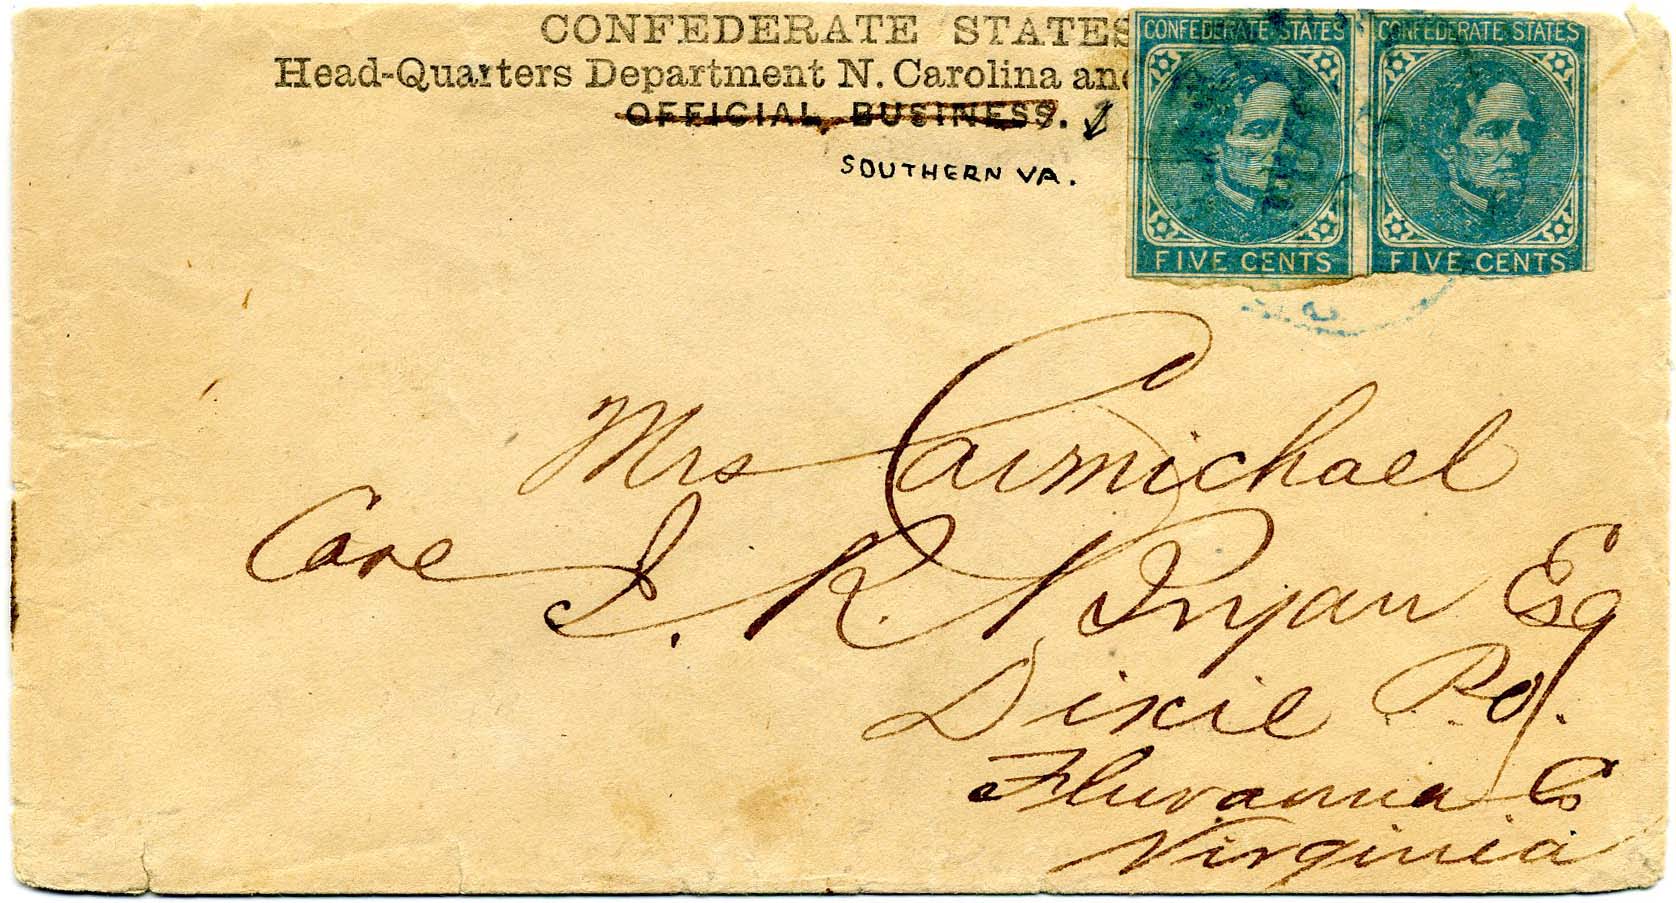 CONFEDERATE STATES
Head-Quarters Department N. Carolina and
OFFICIAL BUSINESS.
SOUTHERN VA.
CONFEDERATE STATES
FIVE CENTS
CONFEDERATE STATES
FIVE CENTS
Mrs Carmichael
Care J. R. Bryan Esq
Dixie P.O.
Fluvanna Co
Virginia